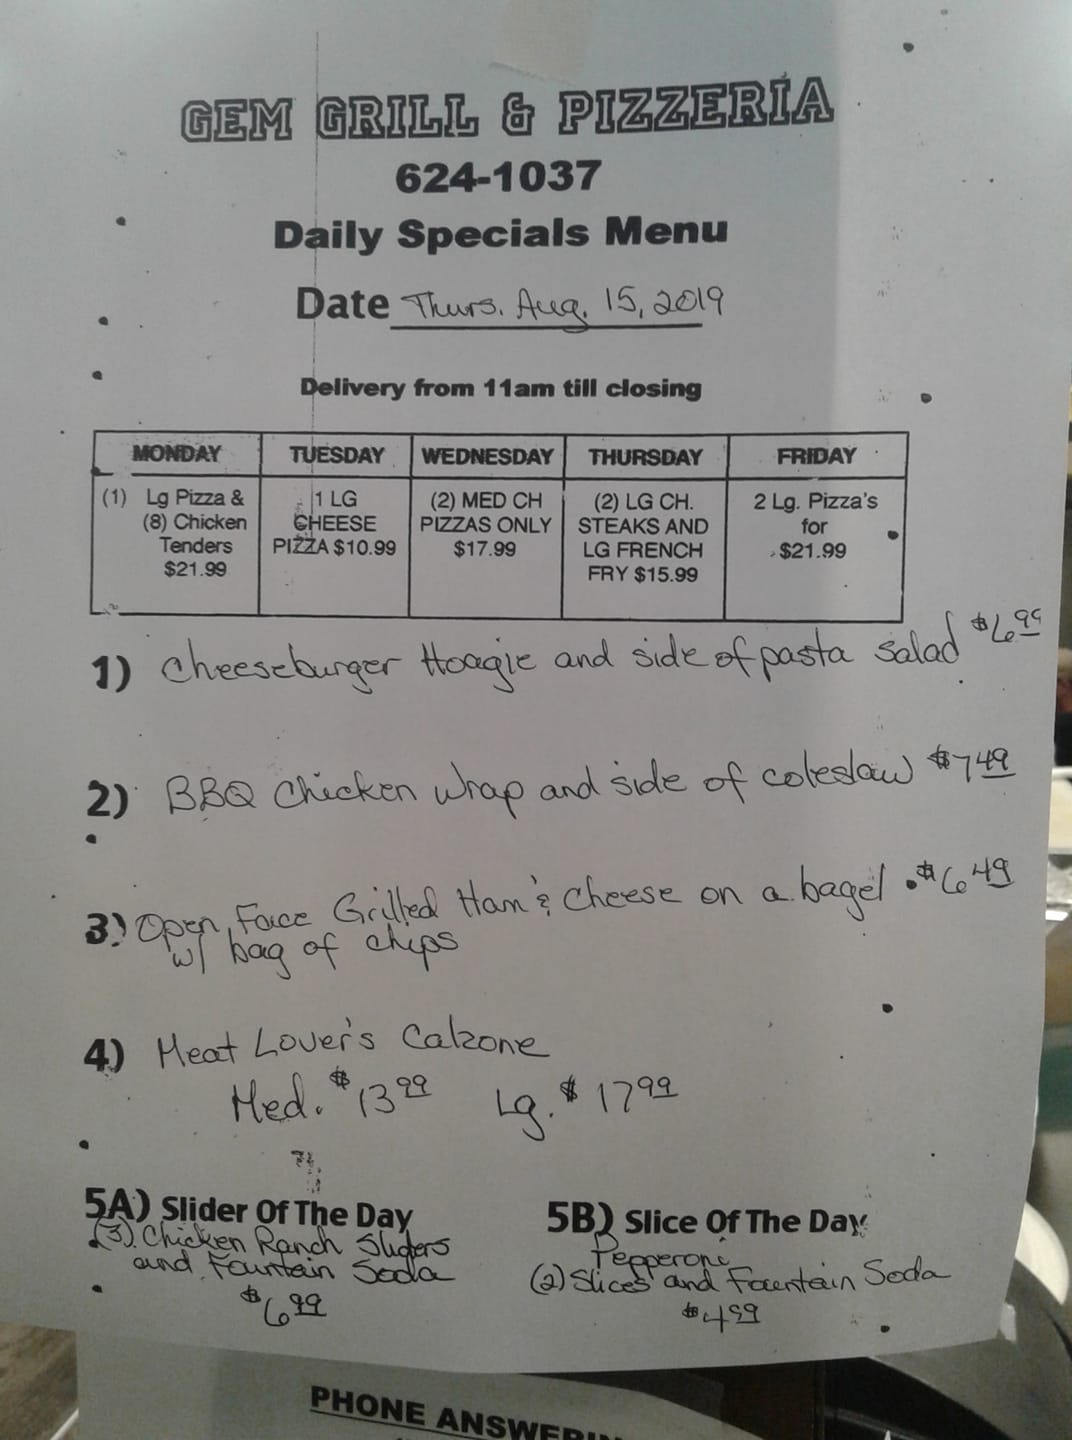 GEM GRILL & PIZZERÍA
624-1037
Daily Specials Menu
Date Thurs. Aug. 15, 2019
Delivery from 11am till closing
MONDAY
(1) Lg Pizza &
(8) Chicken
Tenders
$21.99
TUESDAY
1 LG
CHEESE
PIZZA $10.99
WEDNESDAY
(2) MED CH
PIZZAS ONLY
$17.99
THURSDAY
(2) LG CH.
STEAKS AND
LG FRENCH
FRY $15.99
FRIDAY
2 Lg. Pizza's
for
$21.99
1) Cheeseburger Hoagie and side of pasta salad $6.99
2) BBQ Chicken Wrap and side of coleslaw $7.49
3) Open Face Grilled Ham & Cheese on a bagel $6.49
w/ bag of chips
4) Meat Lover's Calzone
Med. $13.99 Lg. $17.99
5A) Slider Of The Day
(3) Chicken Ranch Sliders
and Fountain Soda
$6.99
5B) Slice Of The Day
Pepperoni
(2) Slices and Fountain Soda
$4.99
PHONE